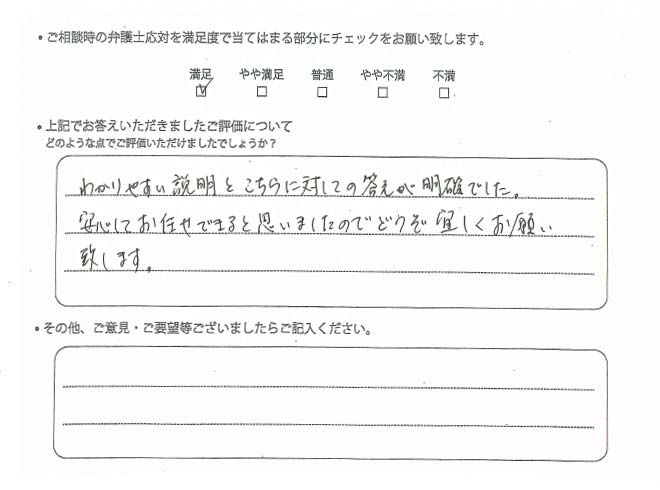 ・ご相談時の弁護士応対を満足度で当てはまる部分にチェックをお願い致します。
満足 やや満足 普通 やや不満 不満
☑ □ □ □ □
・上記でお答えいただきましたご評価について
どのような点でご評価いただけましたでしょうか？
わかりやすい説明とこちらに対しての答えが明確でした。
安心してお任せできると思いましたのでどうぞ宜しくお願い
致します。
・その他、ご意見・ご要望等ございましたらご記入ください。